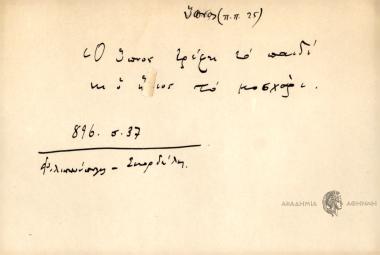 ὕπνος (π.π. 25)
Ὁ ὕπνος τρέφει τὸ παιδὶ
κι ὁ ἥλιος τὸ μοσχάρι.
896. σ. 37
Φιλιππούπολις - Σκορδέλης
ΑΚΑΔΗΜΙΑ ΑΘΗΝΩΝ